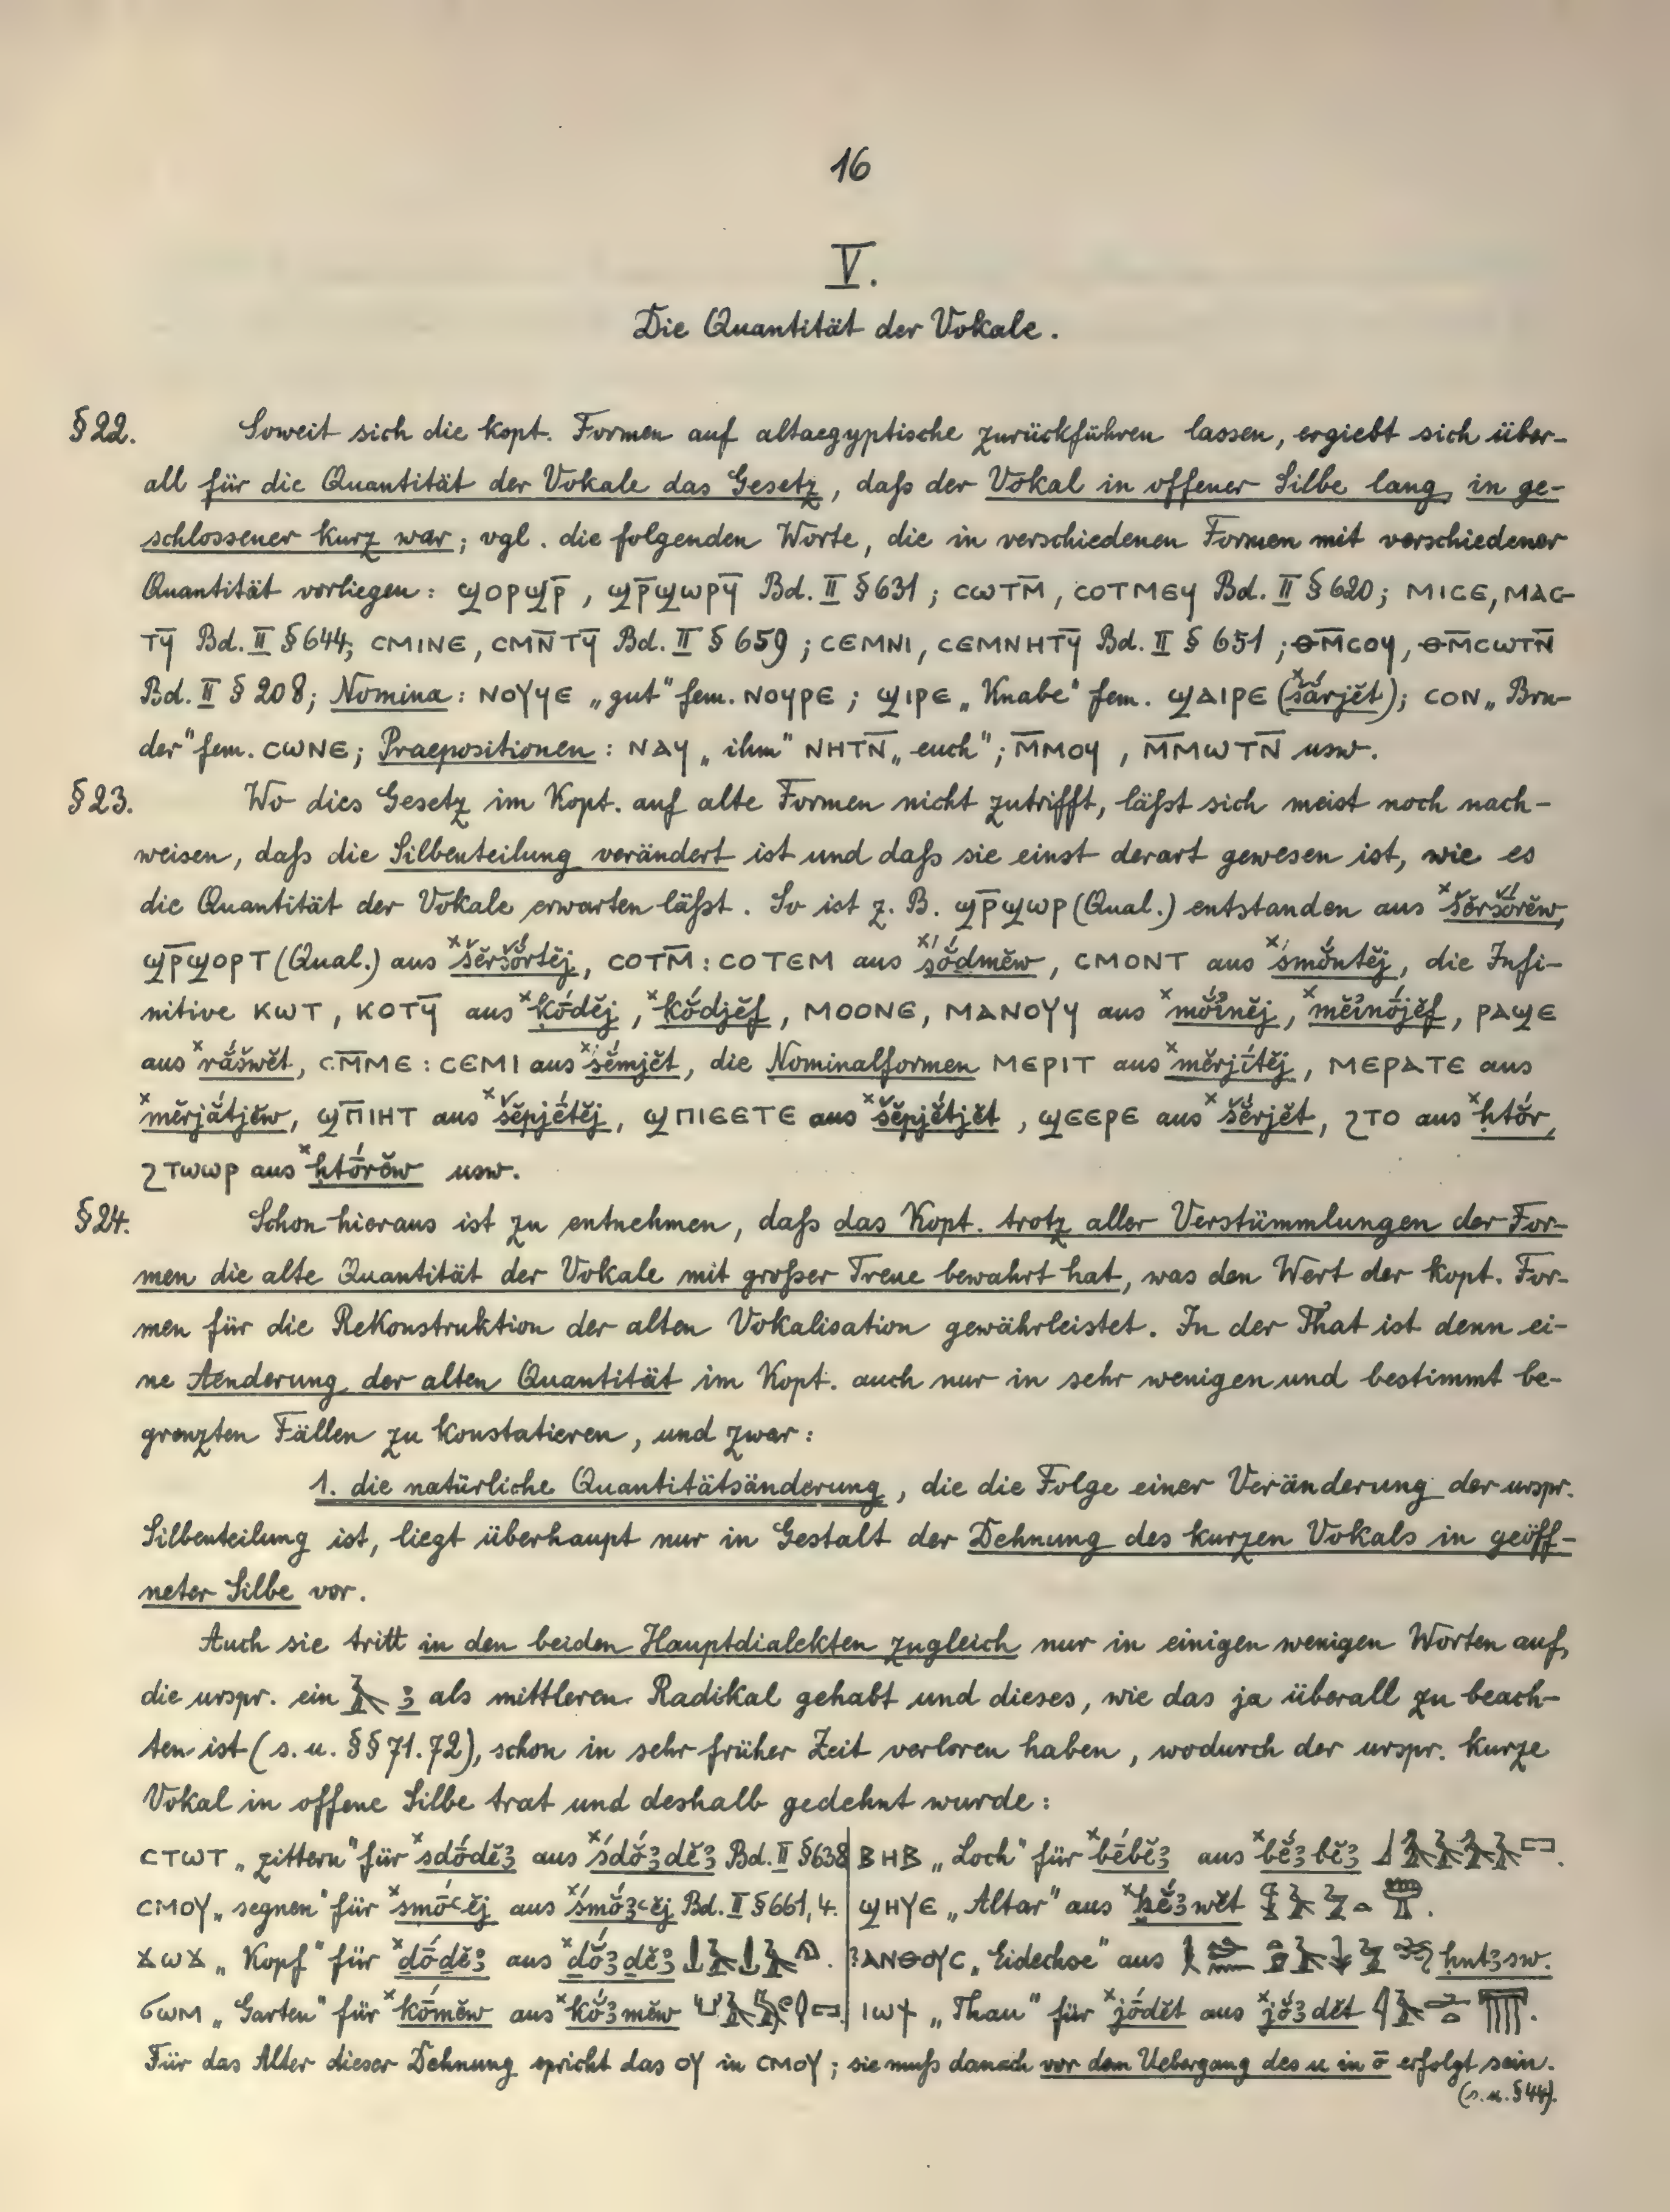 16
V.
Die Quantität der Vokale.
§22. Soweit sich die kopt. Formen auf altaegyptische zurückführen lassen, ergiebt sich über-
all für die Quantität der Vokale das Gesetz, daſs der Vokal in offener Silbe lang, in ge-
schlossener kurz war; vgl. die folgenden Worte, die in verschiedenen Formen mit verschiedener
Quantität vorliegen: ϣⲟⲣϣⲣ̅, ϣⲣ̅ϣⲱⲣϥ̅ Bd. II §631; ⲥⲱⲧⲙ̅, ⲥⲟⲧⲙⲉϥ Bd. II §620; ⲙⲓⲥⲉ, ⲙⲁⲥ-
ⲧϥ̅ Bd. II §644; ⲥⲙⲓⲛⲉ, ⲥⲙⲛ̅ⲧϥ̅ Bd. II §659; ⲥⲉⲙⲛⲓ, ⲥⲉⲙⲛⲏⲧϥ̅ Bd. II §651; ⲑⲙ̅ⲥⲟϥ, ⲑⲙ̅ⲥⲱⲧⲛ̅
Bd. II §208; Nomina: ⲛⲟⲩϥⲉ „gut" fem. ⲛⲟϥⲣⲉ; ϣⲓⲣⲉ „Knabe" fem. ϣⲁⲓⲣⲉ (šărjĕt); ⲥⲟⲛ „Bru-
der" fem. ⲥⲱⲛⲉ; Praepositionen: ⲛⲁϥ „ihm" ⲛⲏⲧⲛ̅ „euch"; ⲙ̅ⲙⲟϥ, ⲙ̅ⲙⲱⲧⲛ̅ usw.
§23. Wo dies Gesetz im Kopt. auf alte Formen nicht zutrifft, läſst sich meist noch nach-
weisen, daſs die Silbenteilung verändert ist und daſs sie einst derart gewesen ist, wie es
die Quantität der Vokale erwarten läſst. So ist z. B. ϣⲣ̅ϣⲱⲣ (Qual.) entstanden aus ˣšĕršṓrĕw,
ϣⲣ̅ϣⲟⲣⲧ (Qual.) aus ˣšĕršŏ́rtĕj, ⲥⲟⲧⲙ̅: ⲥⲟⲧⲉⲙ aus ˣśŏ́dmĕw, ⲥⲙⲟⲛⲧ aus ˣśmŏ́ntĕj, die Infi-
nitive ⲕⲱⲧ, ⲕⲟⲧϥ̅ aus ˣḳṓdĕj, ˣḳŏ́djĕf, ⲙⲟⲟⲛⲉ, ⲙⲁⲛⲟⲩϥ aus ˣmŏ́inĕj, ˣmĕinṓjĕf, ⲣⲁϣⲉ
aus ˣrắšwĕt, ⲥⲙ̅ⲙⲉ: ⲥⲉⲙⲓ aus ˣśĕ́mjĕt, die Nominalformen ⲙⲉⲣⲓⲧ aus ˣmĕrjī́tĕj, ⲙⲉⲣⲁⲧⲉ aus
ˣmĕrjắtjĕw, ϣⲡ̅ⲓⲏⲧ aus ˣšĕpjḗtĕj, ϣⲡⲓⲉⲉⲧⲉ aus ˣšĕpjĕ́tjĕt, ϣⲉⲉⲣⲉ aus ˣšĕ́rjĕt, ϩⲧⲟ aus ˣḥtŏ́r,
ϩⲧⲱⲱⲣ aus ˣḥtṓrĕw usw.
§24. Schon hieraus ist zu entnehmen, daſs das Kopt. trotz aller Verstümmlungen der For-
men die alte Quantität der Vokale mit groſser Treue bewahrt hat, was den Wert der kopt. For-
men für die Rekonstruktion der alten Vokalisation gewährleistet. In der That ist denn ei-
ne Aenderung der alten Quantität im Kopt. auch nur in sehr wenigen und bestimmt be-
grenzten Fällen zu konstatieren, und zwar:
1. die natürliche Quantitätsänderung, die die Folge einer Veränderung der urspr.
Silbenteilung ist, liegt überhaupt nur in Gestalt der Dehnung des kurzen Vokals in geöff-
neter Silbe vor.
Auch sie tritt in den beiden Hauptdialekten zugleich nur in einigen wenigen Worten auf,
die urspr. ein 𓄿 ꜣ als mittleren Radikal gehabt und dieses, wie das ja überall zu beach-
ten ist (s. u. §§71.72), schon in sehr früher Zeit verloren haben, wodurch der urspr. kurze
Vokal in offene Silbe trat und deshalb gedehnt wurde:
ⲥⲧⲱⲧ „zittern" für ˣsdṓdĕꜣ aus ˣśdŏ́ꜣdĕꜣ Bd. II §638 ⲃⲏⲃ „Loch" für ˣbḗbĕꜣ aus ˣbĕ́ꜣbĕꜣ
ⲥⲙⲟⲩ „segnen" für ˣsmṓꜥĕj aus ˣśmŏ́ꜣꜥĕj Bd. II §661, 4. ϣⲏⲩⲉ „Altar" aus ˣḫĕ́ꜣwĕt
ϫⲱϫ „Kopf" für ˣdṓdĕꜣ aus ˣdŏ́ꜣdĕꜣ. ⲁⲛⲑⲟⲩⲥ „Eidechse" aus ḥntꜣsw.
ϭⲱⲙ „Garten" für ˣkṓmĕw aus ˣkŏ́ꜣmĕw ⲓⲱϯ „Thau" für ˣjṓdĕt aus ˣjŏ́ꜣdĕt
Für das Alter dieser Dehnung spricht das ⲟⲩ in ⲥⲙⲟⲩ; sie muſs danach vor dem Uebergang des u in ō erfolgt sein.
(s. u. §44).